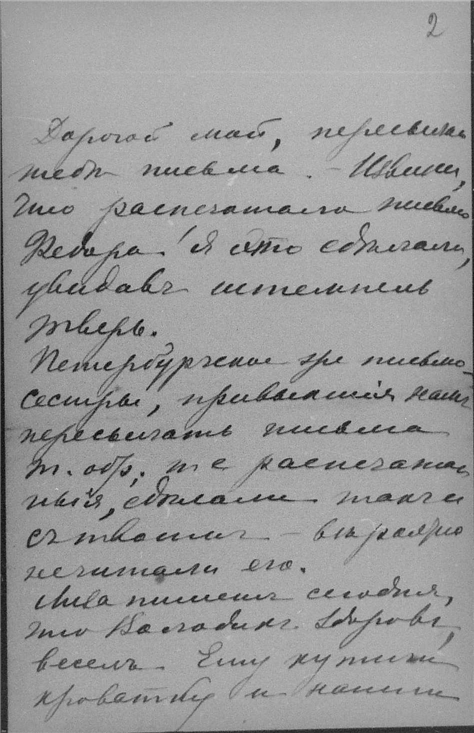 2
Дорогой мой, пересылаю
тебѣ письма. - Извини,
что распечатала письмо
Федора! Я это сдѣлала,
увидавъ штемпель
Тверь.
Петербургское же письмо -
сестры, привыкшія намъ
пересылать письма
т. обр., т. е. распечатан
ныя, сдѣлали также и
съ твоимъ - вѣроятно
нечитали его.
пишетъ сегодня,
что Володинька здоровъ,
веселъ. Ему купили
кроватку и